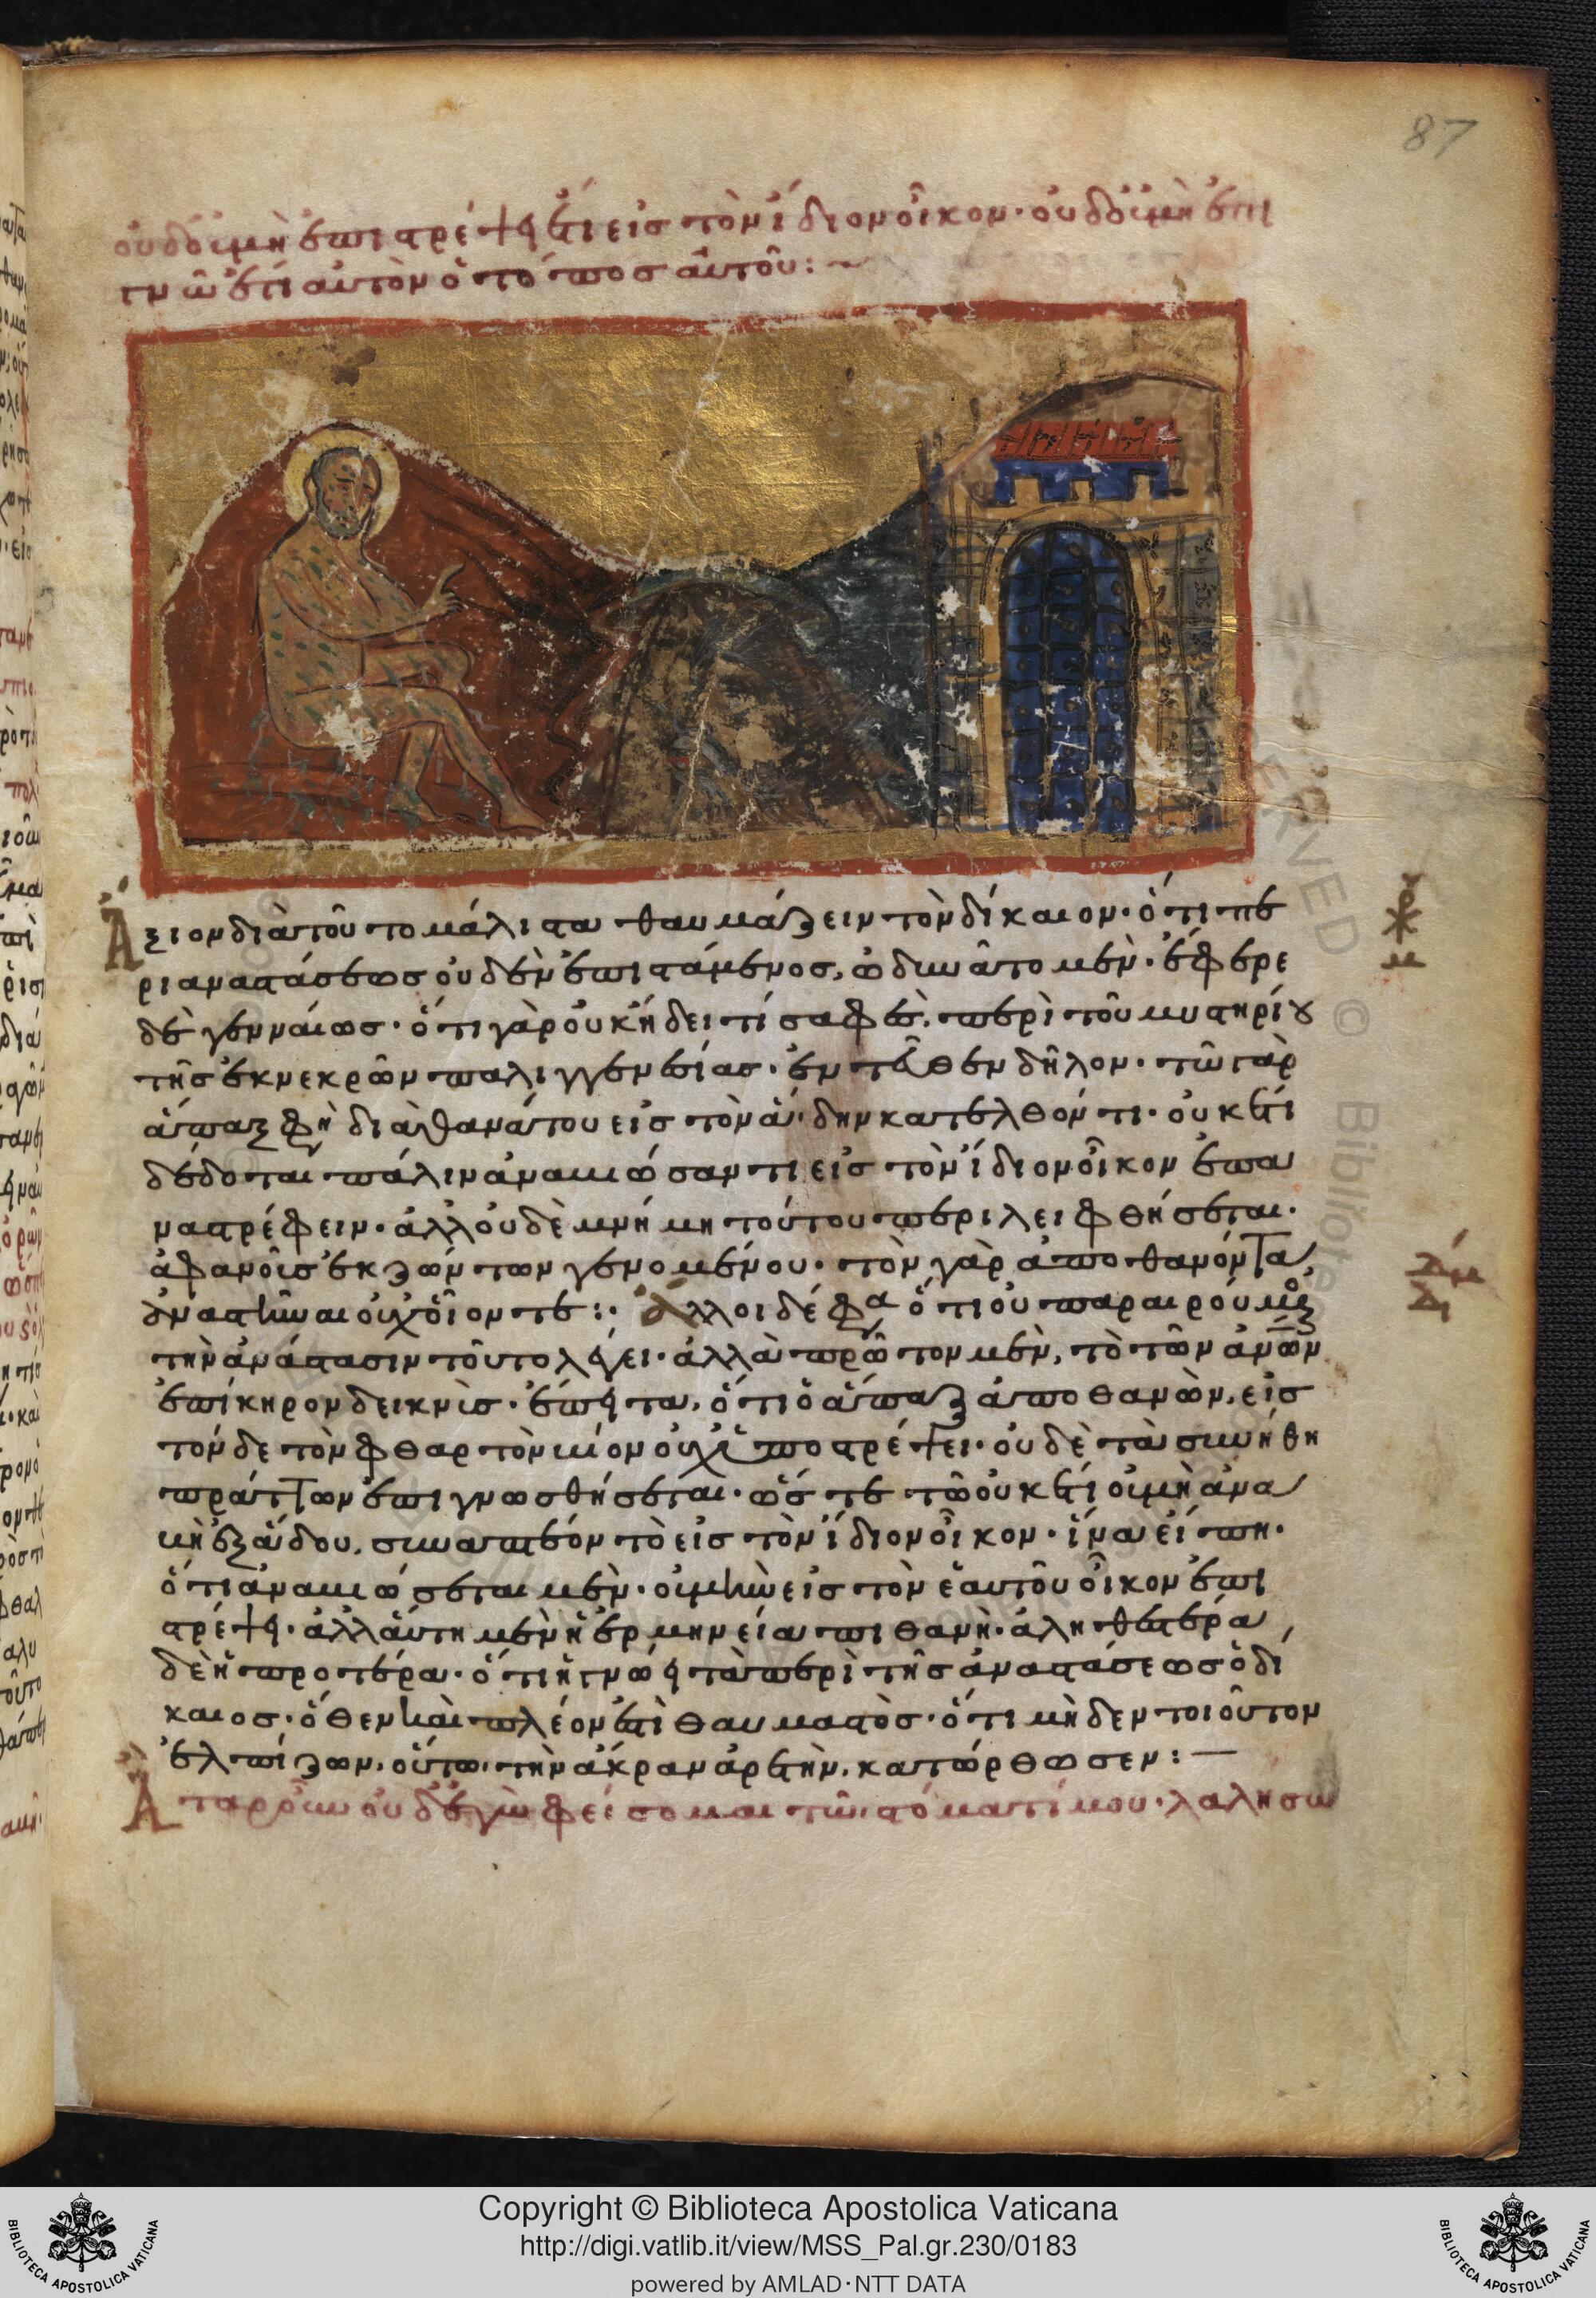 87
οὐδ' οὐ μὴ ἐπιστρέψῃ ἔτι εἰς τὸν ἴδιον οἶκον· οὐδ' οὐ μὴ ἐπι
γνῷ ἔτι αὐτὸν ὁ τόπος αὐτοῦ:~
Ἄξιον διὰ τοῦτο μάλιστα θαυμάζειν τὸν δίκαιον· ὅτι πε
ρὶ ἀναστάσεως οὐδὲν ἐπιστάμενος, ὠδυνᾶτο μὲν· ἔφερε
δὲ γενναίως· ὅτι γὰρ οὐκ ᾔδει τί σαφὲς, περὶ τοῦ μυστηρίου
τῆς ἐκ νεκρῶν παλιγγενεσίας· ἐντεῦθεν δῆλον· τῷ γὰρ
ἅπαξ φη διὰ θανάτου εἰς τὸν ἅδην κατελθόντι· οὐκ ἔτι
δέδοται πάλιν ἀναβιώσαντι εἰς τὸν ἴδιον οἶκον ἐπα
ναστρέφειν· ἀλλ' οὐδὲ μνήμη τούτου περιλειφθήσεται·
ἀφανοῖς ἐκ ζώντων γενομένου· τὸν γὰρ ἀποθανόντα
ἀναστῆναι οὐχ οἷόν τε:· ἄλλοι δέ φα ὅτι οὐ παραιρούμενος
τὴν ἀνάστασιν τοῦτο λέγει· ἀλλὰ πρῶτον μὲν, τὸ τῶν ἀνων
ἐπίκηρον δεικνὺς· ἔπειτα, ὅτι ὁ ἅπαξ ἀποθανὼν, εἰς
τόνδε τὸν φθαρτὸν βίον οὐχ ὑποστρέψει· οὐδὲ τὰ συνήθη
πράττων ἐπιγνωσθήσεται· ὥστε τὸ οὐκ ἔτι οὐ μὴ ἀνα
βῇ ἐξ ἅδου, συναπτέον τὸ εἰς τὸν ἴδιον οἶκον· ἵνα εἴπῃ·
ὅτι ἀναβιώσεται μὲν· οὐ μὴν εἰς τὸν ἑαυτοῦ οἶκον ἐπι
στρέψει· ἀλλ' αὕτη μὲν ἡ ἑρμηνεία πιθανὴ· ἀληθεστέρα
δὲ ἡ προτέρα· ὅτι ἠγνόει τὰ περὶ τῆς ἀναστάσεως ὁ δί
καιος· ὅθεν καὶ πλέον ἐστὶ θαυμαστὸς· ὅτι μηδὲν τοιοῦτον
ἐλπίζων, οὕτω τὴν ἄκραν ἀρετὴν, κατώρθωσεν:—
Ἀτὰρ οὖν οὐδ' ἐγὼ φείσομαι τῷ στόματί μου· λαλήσω
Copyright © Biblioteca Apostolica Vaticana
http://digi.vatlib.it/view/MSS_Pal.gr.230/0183
powered by AMLAD·NTT DATA
BIBLIOTECA APOSTOLICA VATICANA
BIBLIOTECA APOSTOLICA VATICANA